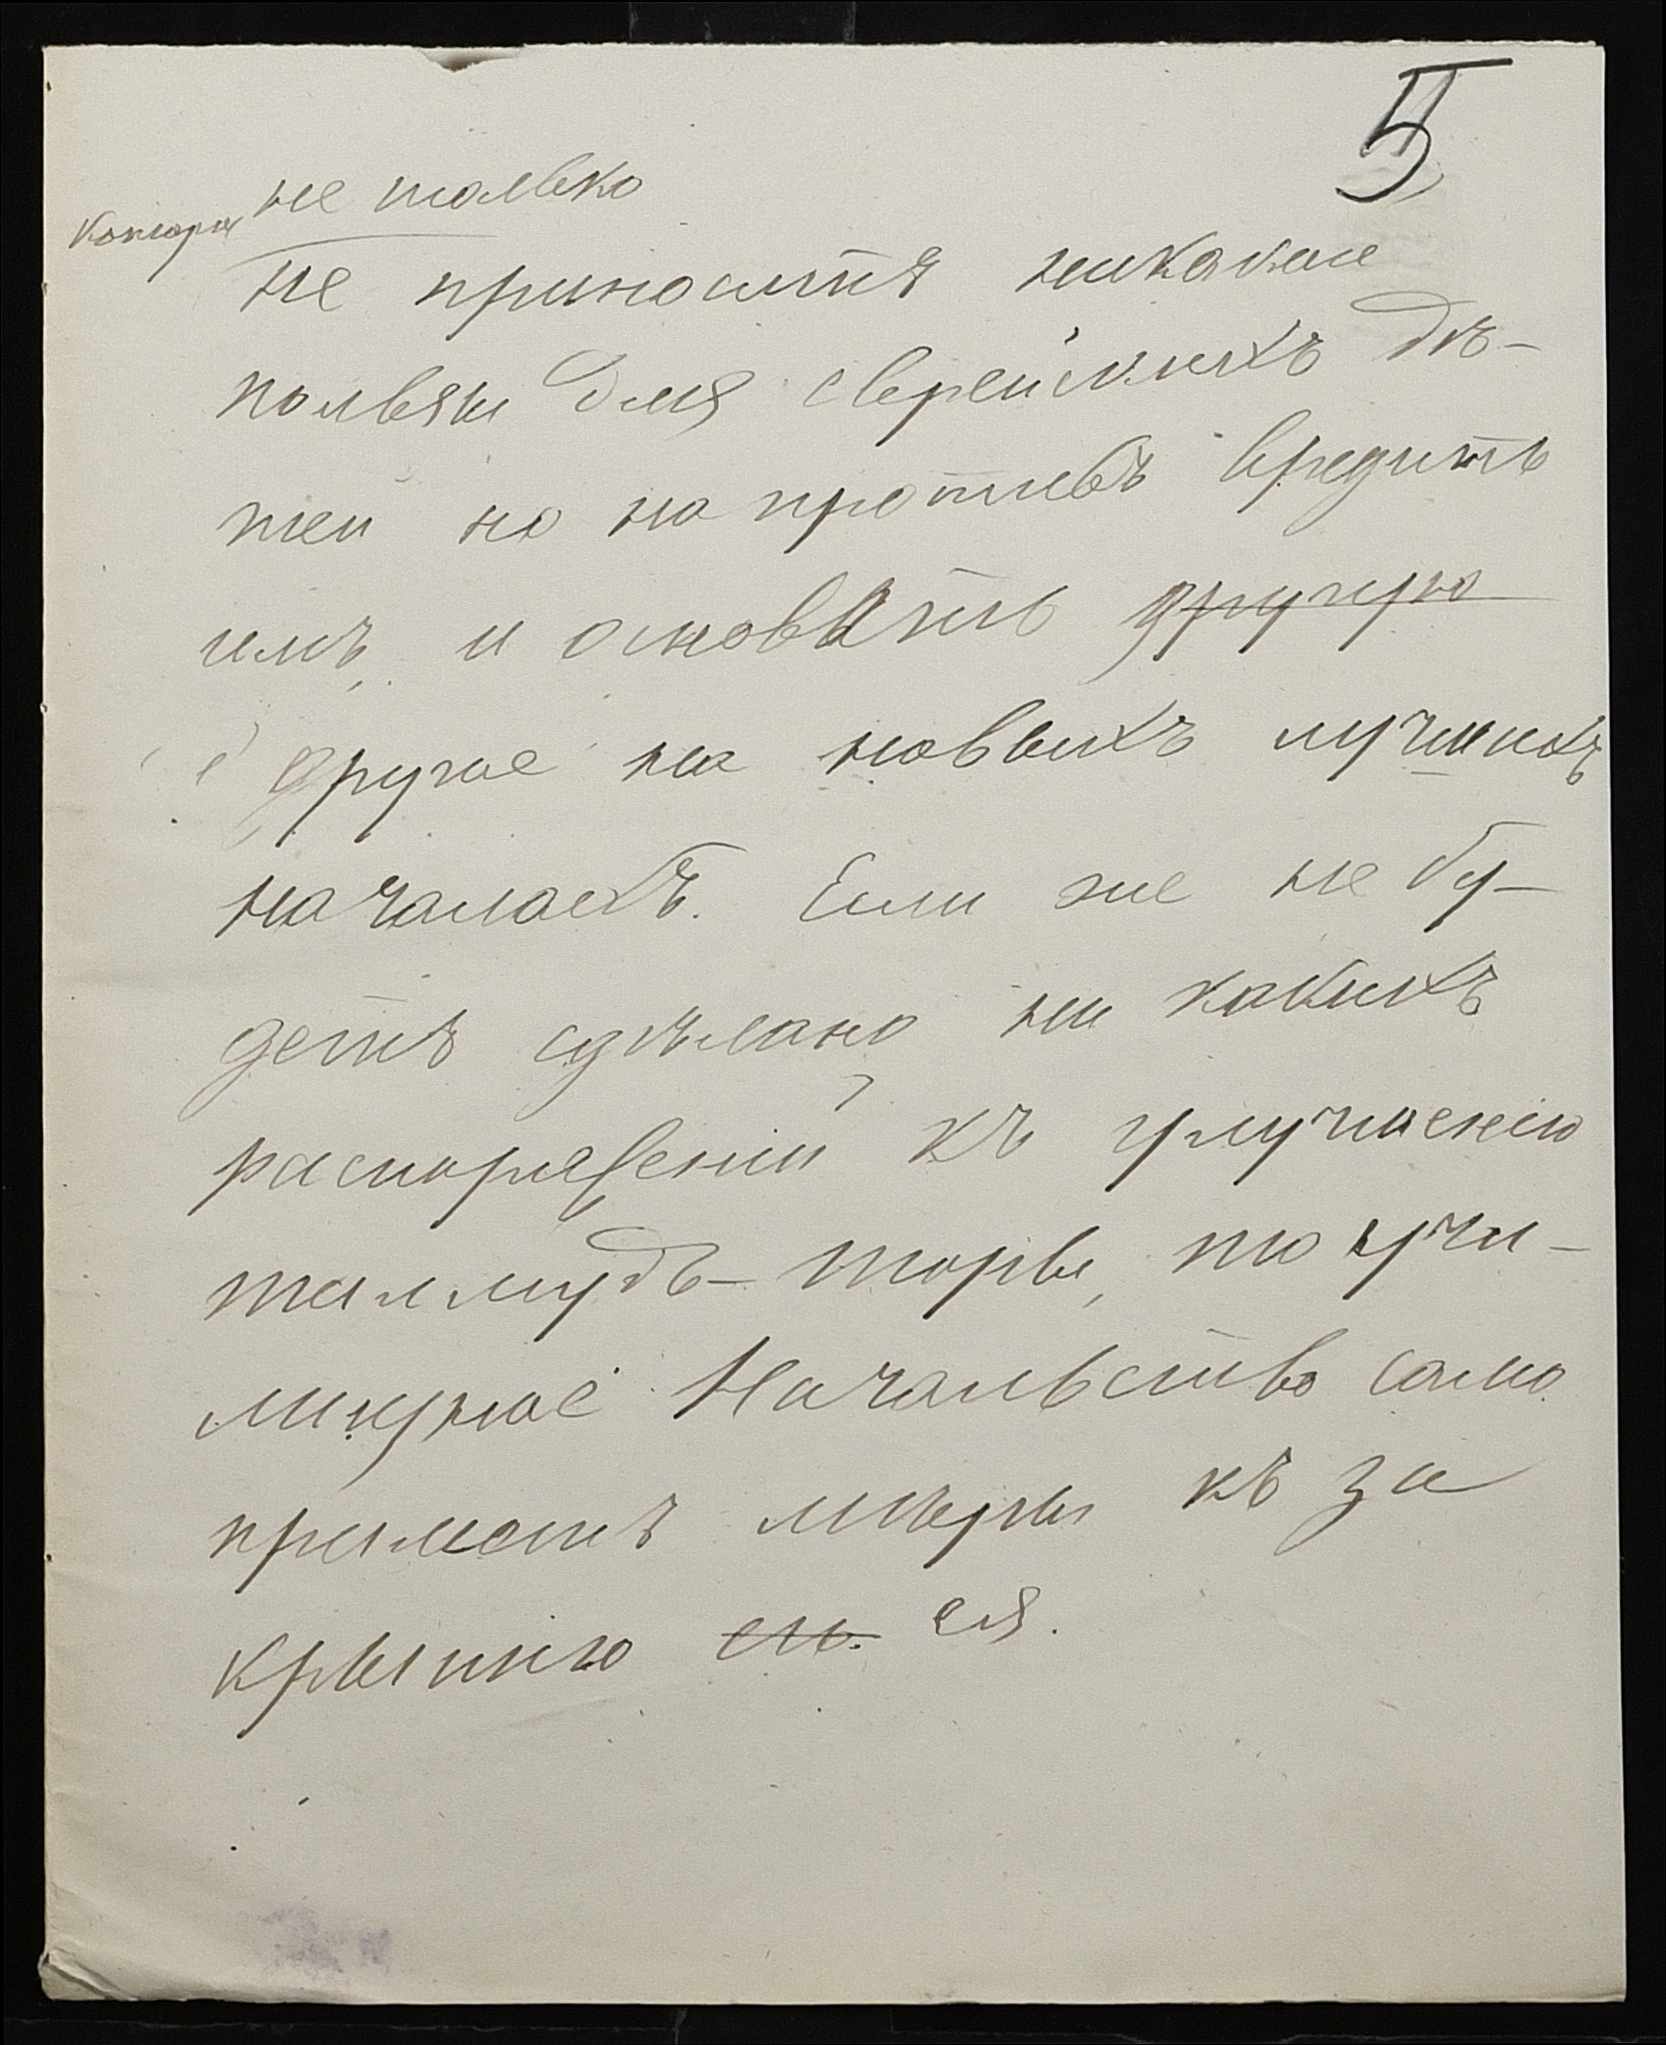 5
не только
которая
не приноситъ никакие
пользы для еврейскихъ дѣ-
тей но на противъ вредитъ
имъ, и основать другую
другое на новыхъ лучшихъ
началахъ. Если же не бу-
детъ сдѣлано ни какихъ
распоряженій къ улучшенію
талмудъ-торы, то учи-
лищное Начальство само
приметъ мѣры къ за
крытію ея.